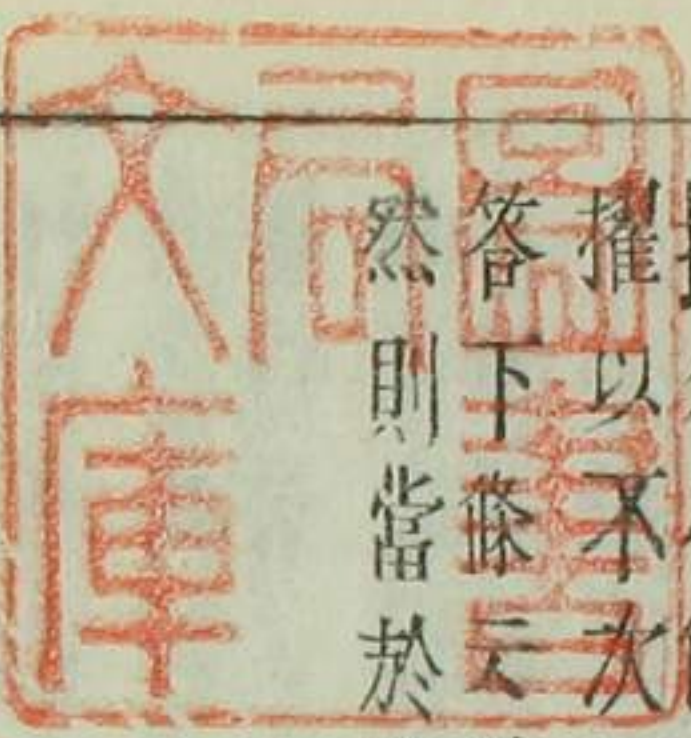 擢以不次
答下條云
然則當於
圖書
司
文庫